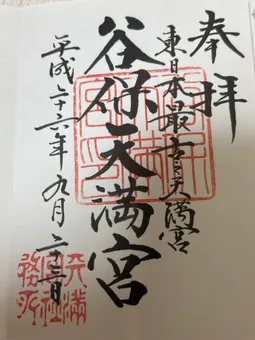 奉拝
東日本最古天満宮
谷保天満宮
平成二十六年九月二十三日
天満
宮社
務所